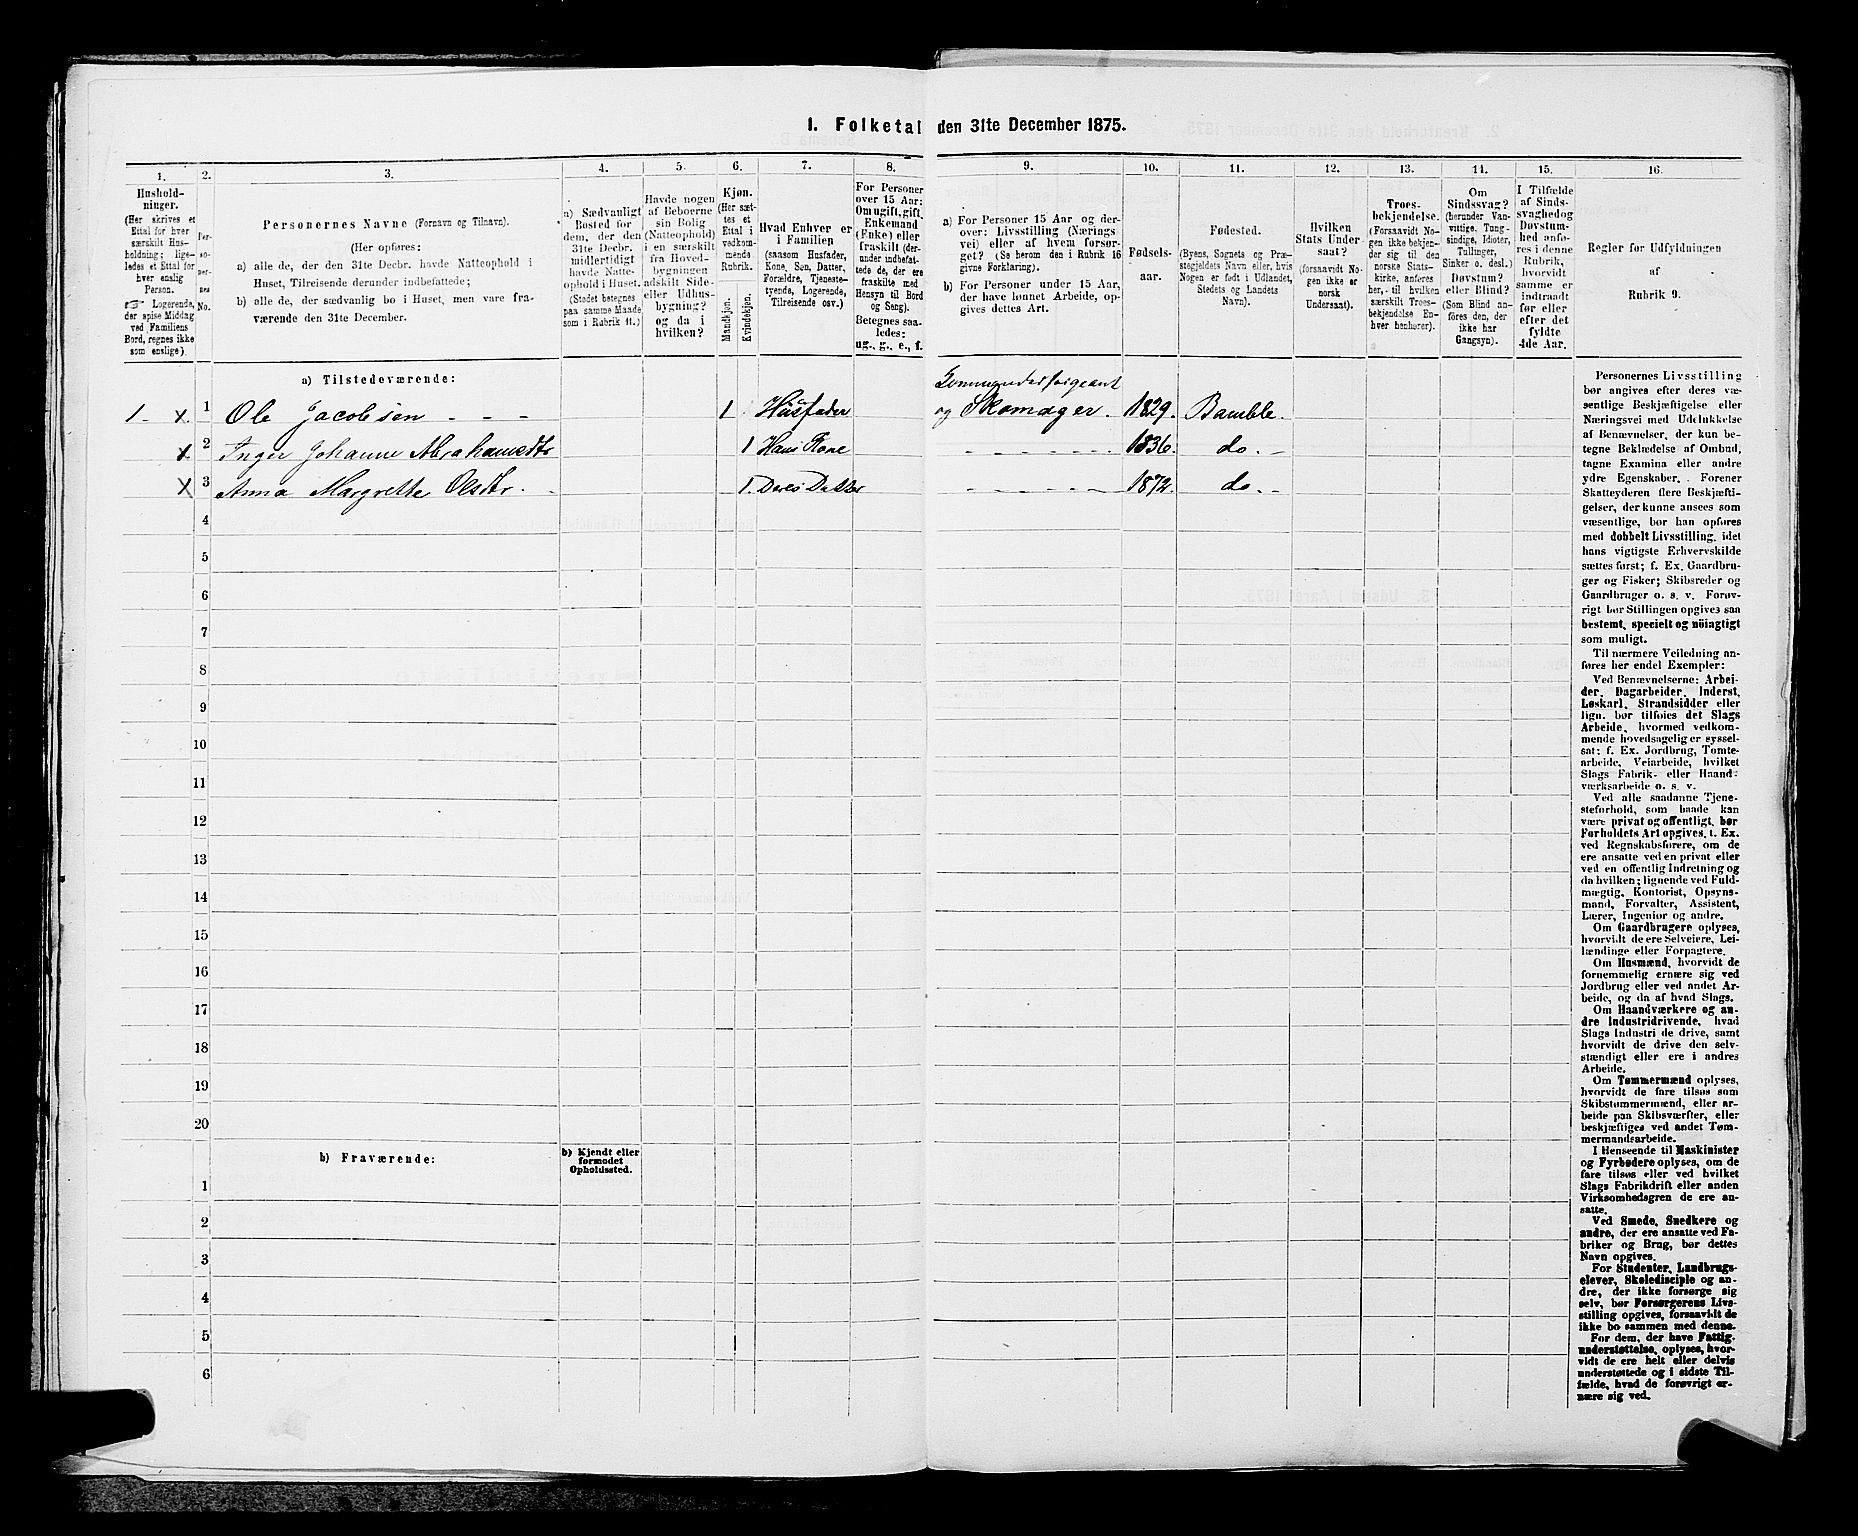 1. Folketal den 31te December 1875.
1.
Hushold-
ninger.
(Her skrives et
Ettal for hver
særskilt Hus-
holdning; lige-
ledes et Ettal for
hver enslig
Person.
☞ Logerende,
der spise Middag
ved Familiens
Bord, regnes ikke
som enslige).
2.
Per-
so-
ner-
nes
No.
3.
Personernes Navne (Fornavn og Tilnavn).
(Her opføres:
a) alle de, der den 31te Decbr. havde Natteophold i
Huset, Tilreisende derunder indbefattede;
b) alle de, der sædvanlig bo i Huset, men vare fra-
værende den 31te December.
4.
a) Sædvanligt
Bosted for
dem, der den
31te Decbr.
midlertidigt
havde Natte-
ophold i Huset.
(Stedet betegnes
paa samme Maade
som i Rubrik 11.)
5.
Havde nogen
af Beboerne
sin Bolig
(Natteophold)
i en særskilt
fra Hoved-
bygningen
adskilt Side-
eller Udhus-
bygning?
og da i
hvilken?
6.
Kjøn.
(Her sæt-
tes et
Ettal i
vedkom-
mende
Rubrik.
Mandkjøn.
Kvindekjøn.
7.
Hvad Enhver er
i Familien
(saasom Husfader,
Kone, Søn, Datter,
Forældre, Tjeneste-
tyende, Logerende,
Tilreisende osv.)
8.
For Personer
over 15 Aar:
Om ugift, gift,
Enkemand
(Enke) eller
fraskilt (der-
under indbefat-
tede de, der ere
fraskilte med
Hensyn til Bord
og Seng).
Betegnes saa-
ledes:
ug., g., e., f.
9.
a) For Personer 15 Aar og der-
over: Livsstilling (Nærings
vei) eller af hvem forsør-
get? (Se herom den i Rubrik 16
givne Forklaring).
b) For Personer under 15 Aar,
der have lønnet Arbeide, op-
gives dettes Art.
10.
Fødsels-
aar.
11.
Fødested.
(Byens, Sognets og Præ-
stegjeldets Navn eller, hvis
Nogen er født i Udlandet,
Stedets og Landets
Navn).
12.
Hvilken
Stats Under-
saat?
(forsaavidt No-
gen ikke er
norsk
Undersaat).
13.
Troes-
bekjendelse.
(Forsaavidt No-
gen ikke bekjen-
der sig til den
norske Stats-
kirke, anføres
her, til hvilken
særskilt Troes-
bekjendelse En-
hver henhører).
14.
Om
Sindssvag?
(herunder Van-
vittige, Tung-
sindige, Idioter,
Tullinger,
Sinker o. desl.)
Døvstum?
eller Blind?
(Som Blind an-
føres den, der
ikke har
Gangsyn).
15.
I Tilfælde
af Sinds-
svaghed og
Døvstum-
hed anfø-
res i denne
Rubrik,
hvorvidt
samme er
indtraadt
før eller
efter det
fyldte
4de Aar.
16.
Regler for Udfyldningen
af
Rubrik 9.
a) Tilstedeværende:
1 - x 1 Ole Jacobsen - - - 1 Husfader og Skomager. 1829. Bamble.
x 2 Inger Johanne Abrahamsdtr 1 Hans Kone - - - 1836. do. -
x 3 Anna Margrethe Olsdtr. 1. Deres Datter - - - 1872. do. -
4
5
6
7
8
9
10
11
12
13
14
15
16
17
18
19
20
b) Fraværende:
b) Kjendt eller
formodet
Opholdssted.
1
2
3
4
5
6
Personernes Livsstilling
bør angives efter deres væ-
sentlige Beskjæftigelse eller
Næringsvei med Udelukkelse
af Benævnelser, der kun be-
tegne Beklædelse af Ombud,
tagne Examina eller andre
ydre Egenskaber. Forener
Skatteyderen flere Beskjæfti-
gelser, der kunne ansees som
væsentlige, bør han opføres
med dobbelt Livsstilling, idet
hans vigtigste Erhvervskilde
sættes først; f. Ex. Gaardbru-
ger og Fisker; Skibsreder og
Gaardbruger o. s. v. Forøv-
rigt bør Stillingen opgives saa
bestemt, specielt og nöiagtigt
som muligt.
Til nærmere Veiledning an-
føres her endel Exempler:
Ved Benævnelserne: Arbei-
der, Dagarbeider, Inderst,
Løskarl, Strandsidder eller
lign. bør tilføies det Slags
Arbeide, hvormed vedkom-
mende hovedsagelig er syssel-
sat; f. Ex. Jordbrug, Tomte-
arbeide, Veiarbeide, hvilket
Slags Fabrik- eller Haand-
værksarbeide o. s. v.
Ved alle saadanne Tjene-
steforhold, som baade kan
være privat og offentligt, bør
Forholdets Art opgives, t. Ex.
ved Regnskabsførere, om de
ere ansatte ved en privat eller
ved en offentlig Indretning og
da hvilken; lignende ved Fuld-
mægtig, Kontorist, Opsyns-
mand, Forvalter, Assistent,
Lærer, Ingeniør og andre.
Om Gaardbrugere oplyses,
hvorvidt de ere Selveiere, Lei-
lændinge eller Forpagtere.
Om Husmænd, hvorvidt de
fornemmelig ernære sig ved
Jordbrug eller ved andet Ar-
beide, og da af hvad Slags.
Om Haandværkere og an-
dre Industridrivende, hvad
Slags Industri de drive, samt
hvorvidt de drive den selv-
stændigt eller ere i andres
Arbeide.
Om Tømmermænd oplyses,
hvorvidt de fare tilsøs som
Skibstømmermænd, eller ar-
beide paa Skibsværfter, eller
beskjæftiges ved andet Tøm-
mermandsarbeide.
I Henseende til Maskinister
og Fyrbødere oplyses, om de
fare tilsøs eller ved hvilket
Slags Fabrikdrift eller anden
Virksomhedsgren de ere an-
satte.
Ved Smede, Snedkere og
andre, der ere ansatte ved Fa-
briker og Brug, bør dettes
Navn opgives.
For Studenter, Landbrugs-
elever, Skoledisciple og an-
dre, der ikke forsørge sig
selv, bør Forsørgerens Livs-
stilling opgives, forsaavidt de
ikke bo sammen med denne.
For dem, der have Fattig-
understøttelse, oplyses, hvor-
vidt de ere helt eller delvis
understøttede og i sidste Til-
fælde, hvad de forøvrigt er-
nære sig ved.